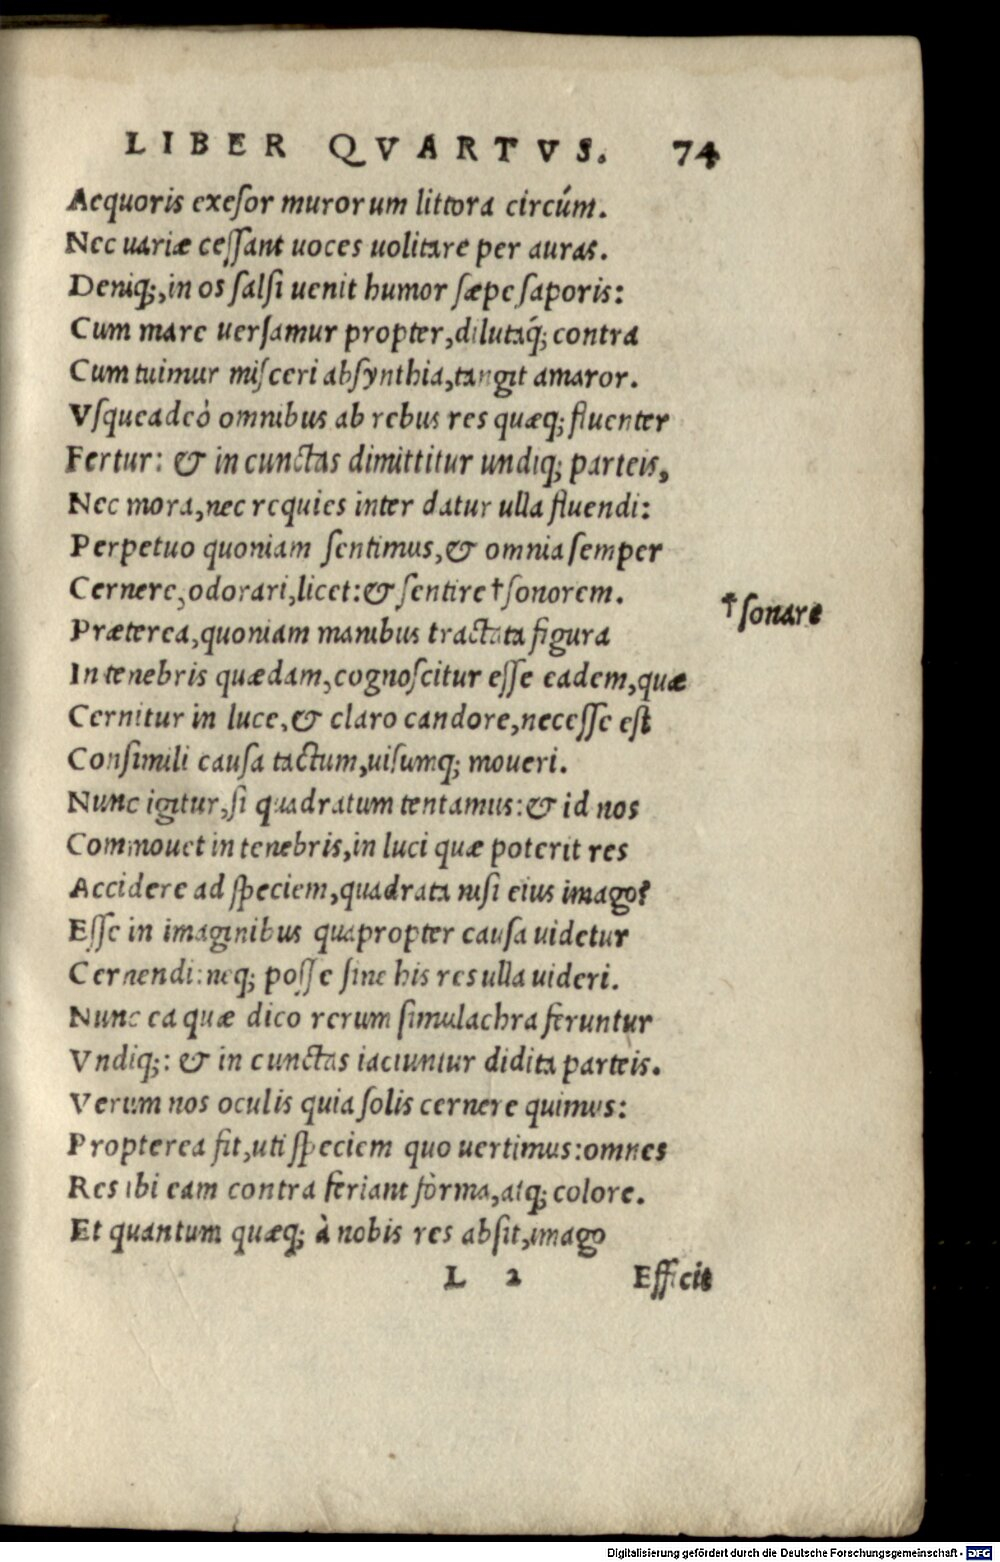 LIBER QVARTVS. 74
Aequoris exeſor murorum littora circúm.
Nec uariæ ceſſant uoces uolitare per auras.
Deniq;, in os ſalſi uenit humor ſæpe ſaporis:
Cum mare uerſamur propter, dilutaq́; contra
Cum tuimur miſceri abſynthia, tangit amaror.
Vſqueadeò omnibus ab rebus res quæq; fluenter
Fertur: & in cunctas dimittitur undiq; parteis,
Nec mora, nec requies inter datur ulla fluendi:
Perpetuo quoniam ſentimus, & omnia ſemper
Cernere, odorari, licet: & ſentire †ſonorem.
†ſonare
Præterea, quoniam manibus tractata figura
In tenebris quædam, cognoſcitur eſſe eadem, quæ
Cernitur in luce, & claro candore, neceſſe eſt
Conſimili cauſa tactum, uiſumq; moueri.
Nunc igitur, ſi quadratum tentamus: & id nos
Commouet in tenebris, in luci quæ poterit res
Accidere ad ſpeciem, quadrata niſi eius imago?
Eſſe in imaginibus quapropter cauſa uidetur
Cernendi: neq; poſſe ſine his res ulla uideri.
Nunc ea quæ dico rerum ſimulachra feruntur
Vndiq;: & in cunctas iaciuntur didita parteis.
Verum nos oculis quia ſolis cernere quimus:
Propterea fit, uti ſpeciem quo uertimus: omnes
Res ibi eam contra feriant fòrma, atq; colore.
Et quantum quæq; à nobis res abſit, imago
L 2 Efficit
Digitalisierung gefördert durch die Deutsche Forschungsgemeinschaft - DFG